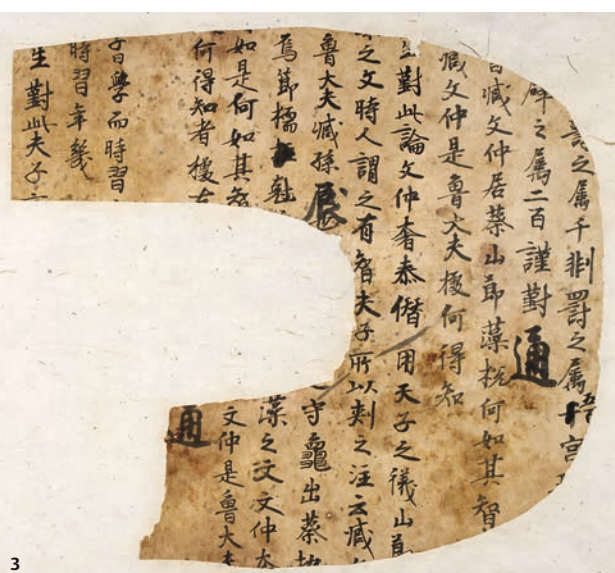 之属千劓罸之属千宫
辟之属二百謹對 通
臧文仲居蔡山節藻梲何如其智
臧文仲是魯大夫據何得知
生對此論文仲奢泰僭用天子之儀山節
之文時人謂之有智夫子所以刺之注云臧
魯大夫臧孫辰 守龜出蔡地
焉節 藻之文文仲奢
如是何如其智 文仲是魯大夫
何得知者據左 通
學而時習
時習年幾
生對此夫子
3